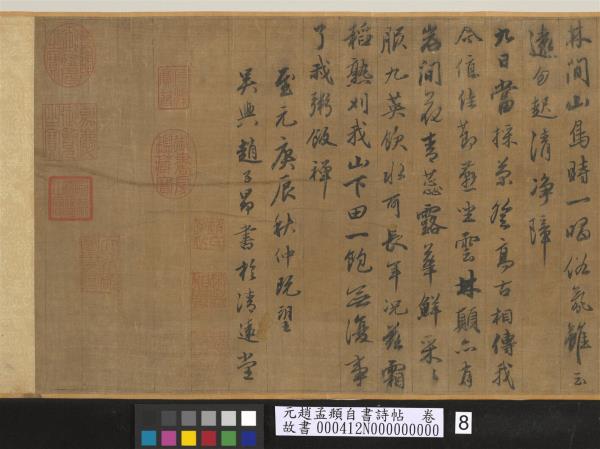 林間山鳥時一鳴俗氛雖云
遠勿起清淨障
九日當採菊登高古相傳我
今值佳節燕坐雲林顛亦有
岩間菊青蕊露華鮮采々
服九英飲水可長年況茲霜
稻熟刈我山下田一飽無復事
了我粥飯禪
至元庚辰秋仲既望
吳興趙子昂書於清遠堂
元趙孟頫自書詩帖 卷
故書 000412N000000000
8